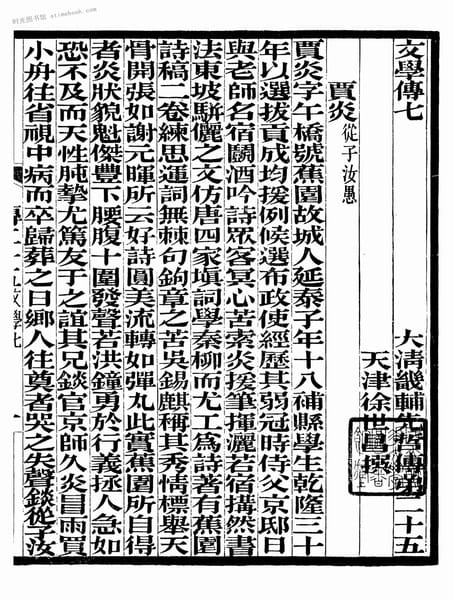 时光图书馆 - stimebook.com
文學傳七 大清畿輔先哲傳第二十五
天津徐世昌撰
賈炎 從子汝愚
賈炎字午橋號蕉園故城人延泰子年十八補縣學生乾隆三十
年以選拔貢成均援例候選布政使經歷其弱冠時侍父京邸日
與老師名宿鬬酒吟詩眾客冥心苦索炎援筆揮灑若宿搆然書
法東坡駢儷之文仿唐四家塡詞學秦柳而尤工爲詩著有蕉園
詩稿二卷練思運詞無棘句鉤章之苦吳錫麒稱其秀情標舉天
骨開張如謝元暉所云好詩圓美流轉如彈丸此實蕉園所自得
者炎狀貌魁傑豐下腰腹十圍發聲若洪鐘勇於行義拯人急如
恐不及而天性肫摯尤篤友于之誼其兄錟官京師久炎冒雨買
小舟往省視中病而卒歸葬之日鄉人往奠者哭之失聲錟從子汝